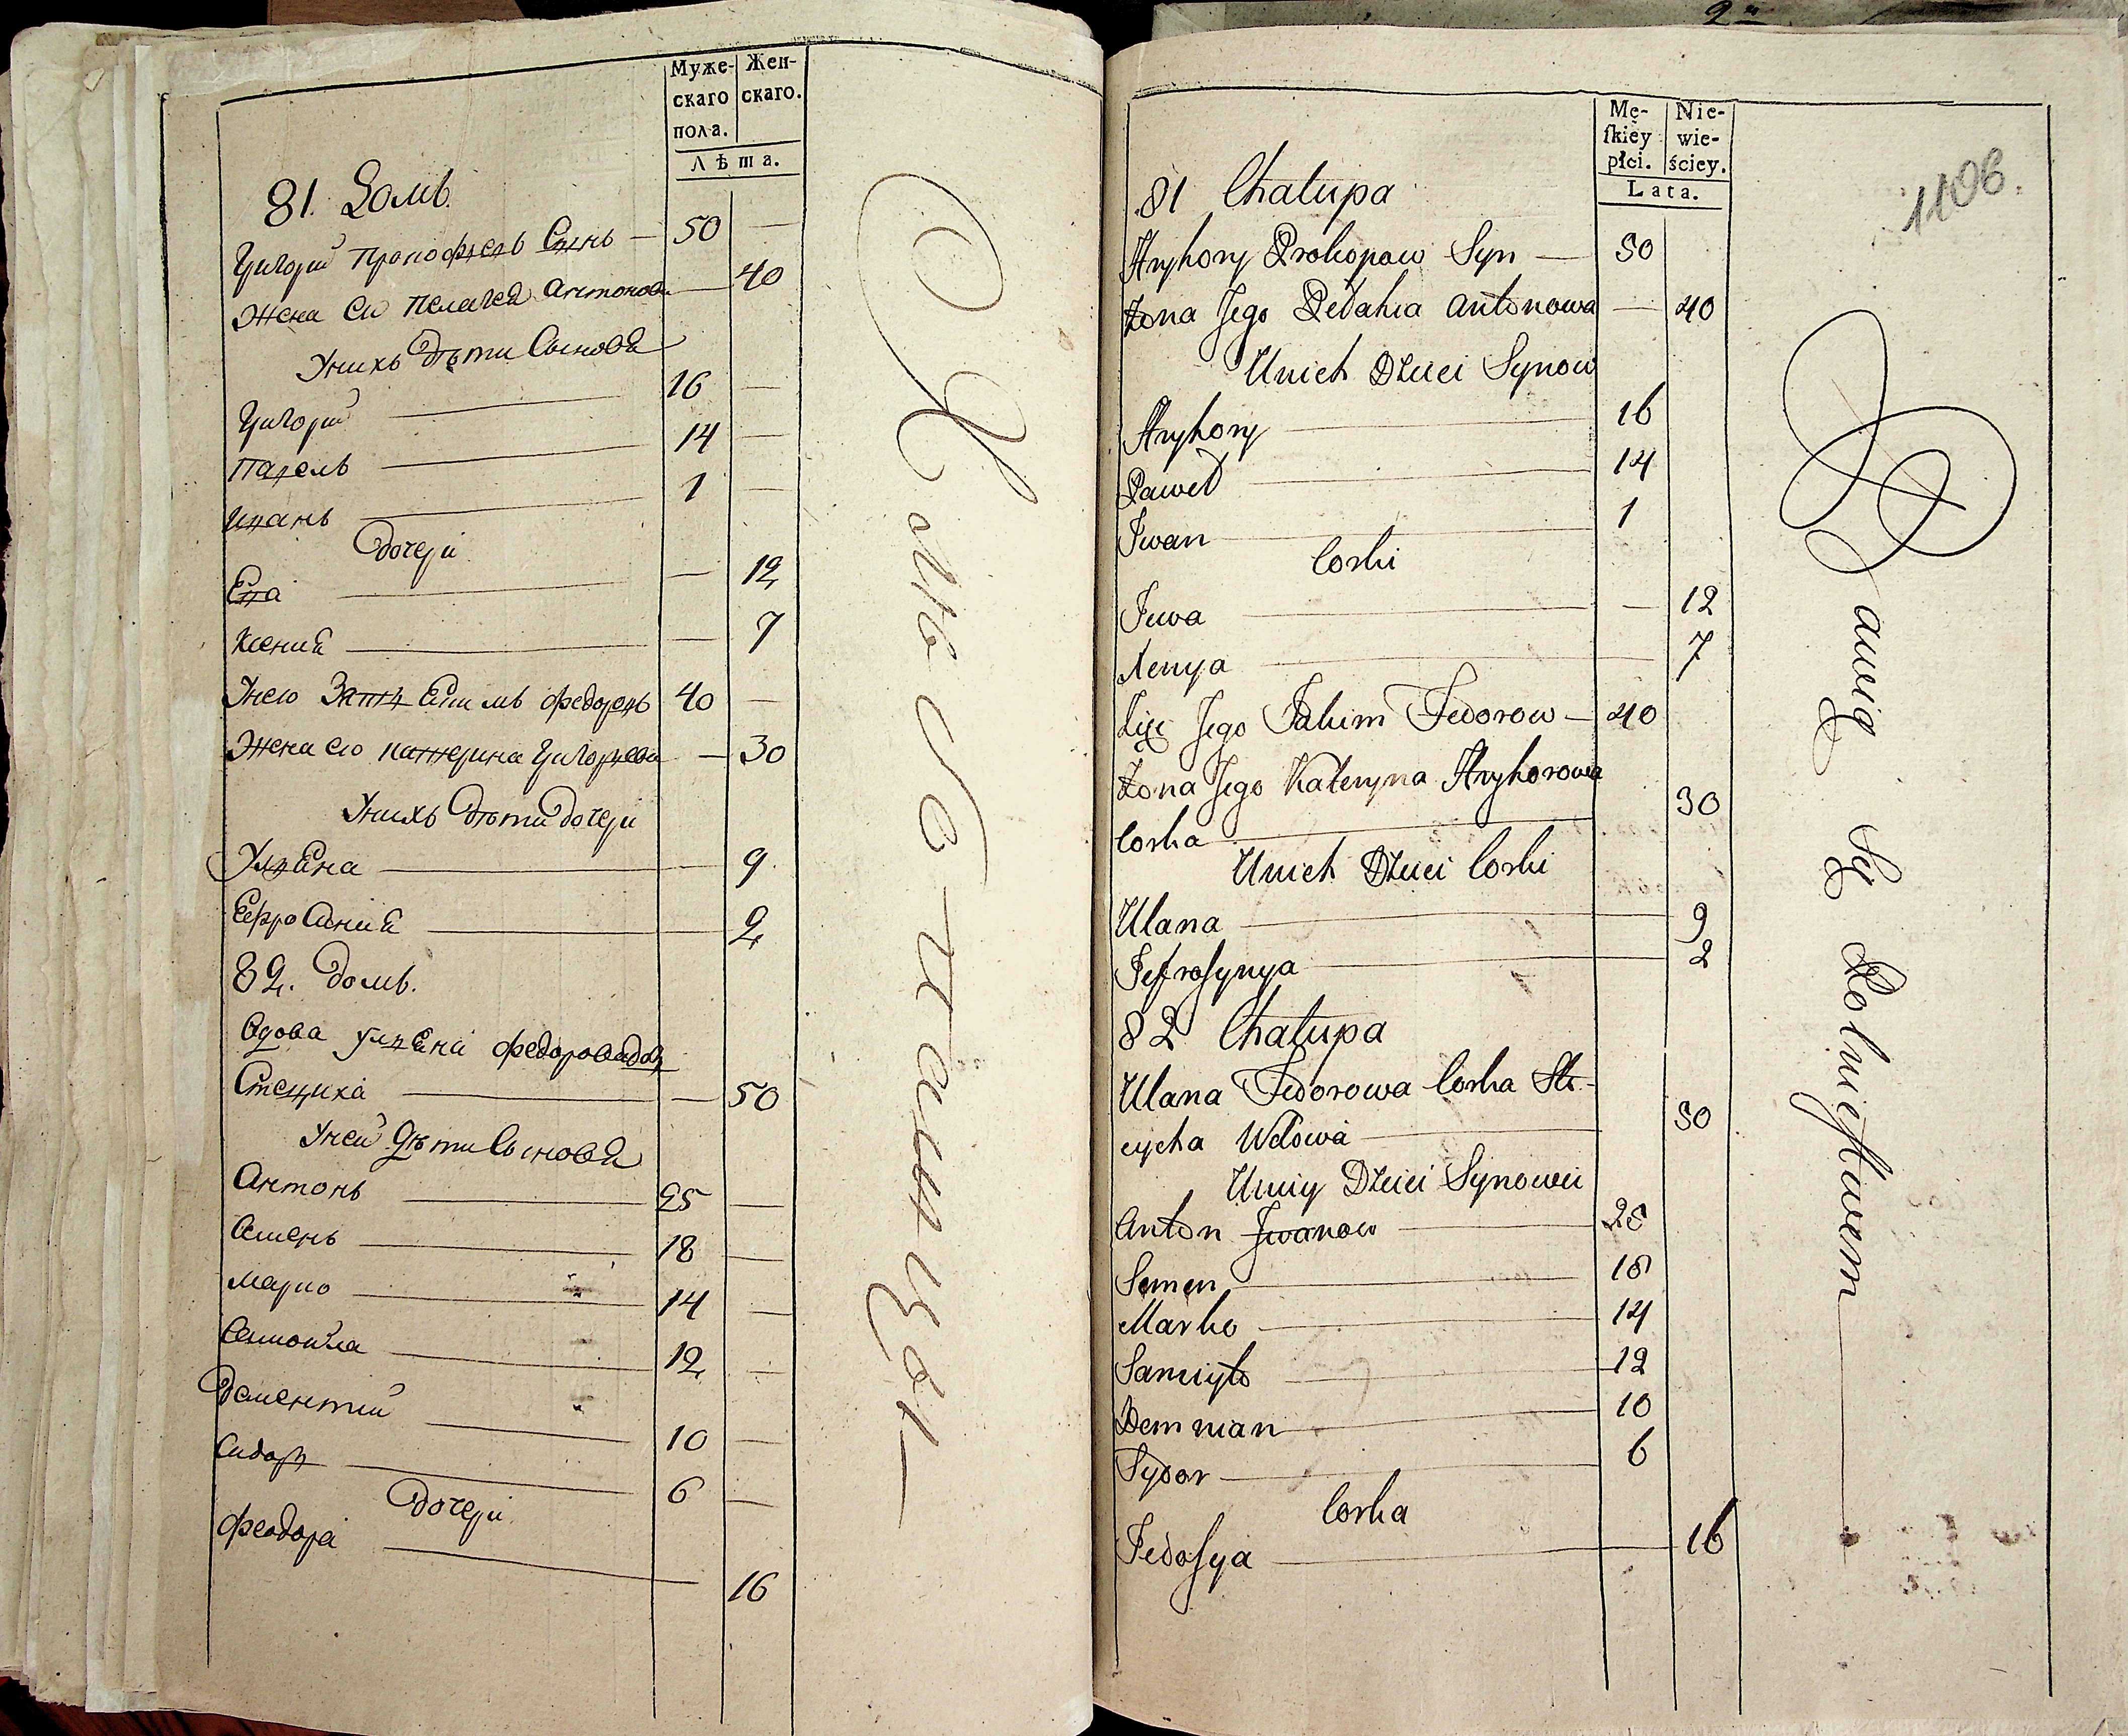 Муже-
скаго
пола.
Жен-
скаго.
Лѣта.
81. Домъ.
Григорій Прокофьевъ Сынъ — 50 —
Жена Ево Пелагея Антонова — 40
У нихъ дѣти Сыновья
Григорій — 16 —
Павелъ — 14 —
Иванъ — 1 —
дочери
Ева — — 12
Ксения — — 7
У нево Зять Еким Федоровъ 40 —
Жена ево Катерина Григорьева — 30
У нихъ дѣти дочери
Ульяна — 9.
Ефросиния — 2
82. домъ.
Вдова Ульяна Федорова дочь
Стециха — — 50
У ней Дѣти Сыновья
Антонъ — 25 —
Семенъ — 18 —
Марко — 14 —
Самойла — 12 —
Дементий — 10 —
Сидор — 6 —
дочери
Феодора — 16
2
Mę-
ſkiéy
płci.
Nie-
wie-
ściey.
Lata.
1106.
81 Chałupa
Hryhory Prokopow Syn — 50
Żona Jego Pełahia Antonowa — 40
U nich Dzieci Synow
Hryhory — 16
Paweł — 14
Iwan — 1
Corki
Iewa — — 12
Xenya — 7
Zięć Jego Jakim Fedorow — 40
Żona Jego Kateryna Hryhorowa
Corka — 30
U nich Dzieci Corki
Ulana — 9
Jefroſynya — 2
82 Chałupa
Ulana Fedorowa Corka Ste-
cycha Wdowa — 50
U niey Dzieci Synowie
Anton Jwanow — 25
Semen — 18
Marko — 14
Samuyło — 12
Demnian — 10
Sydor — 6
Corka
Fedoſya — 16